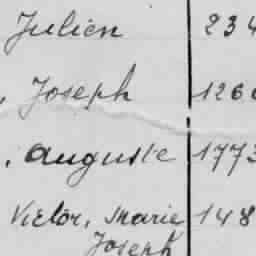 Julien 234
, Joseph 1266
, Auguste 1773
Victor, Marie 148
Joseph